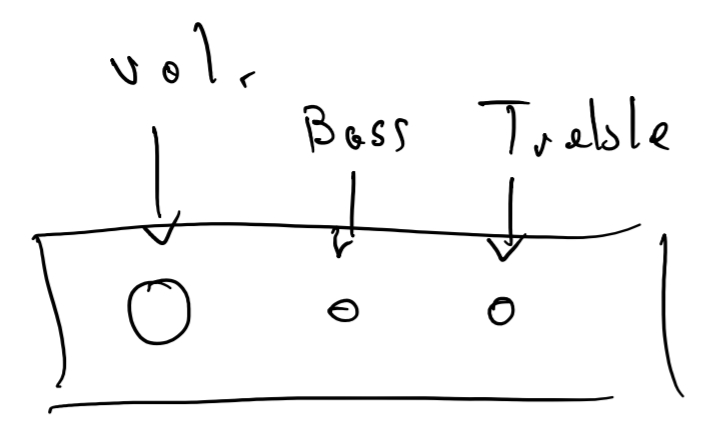 vol.
Bass
Treble